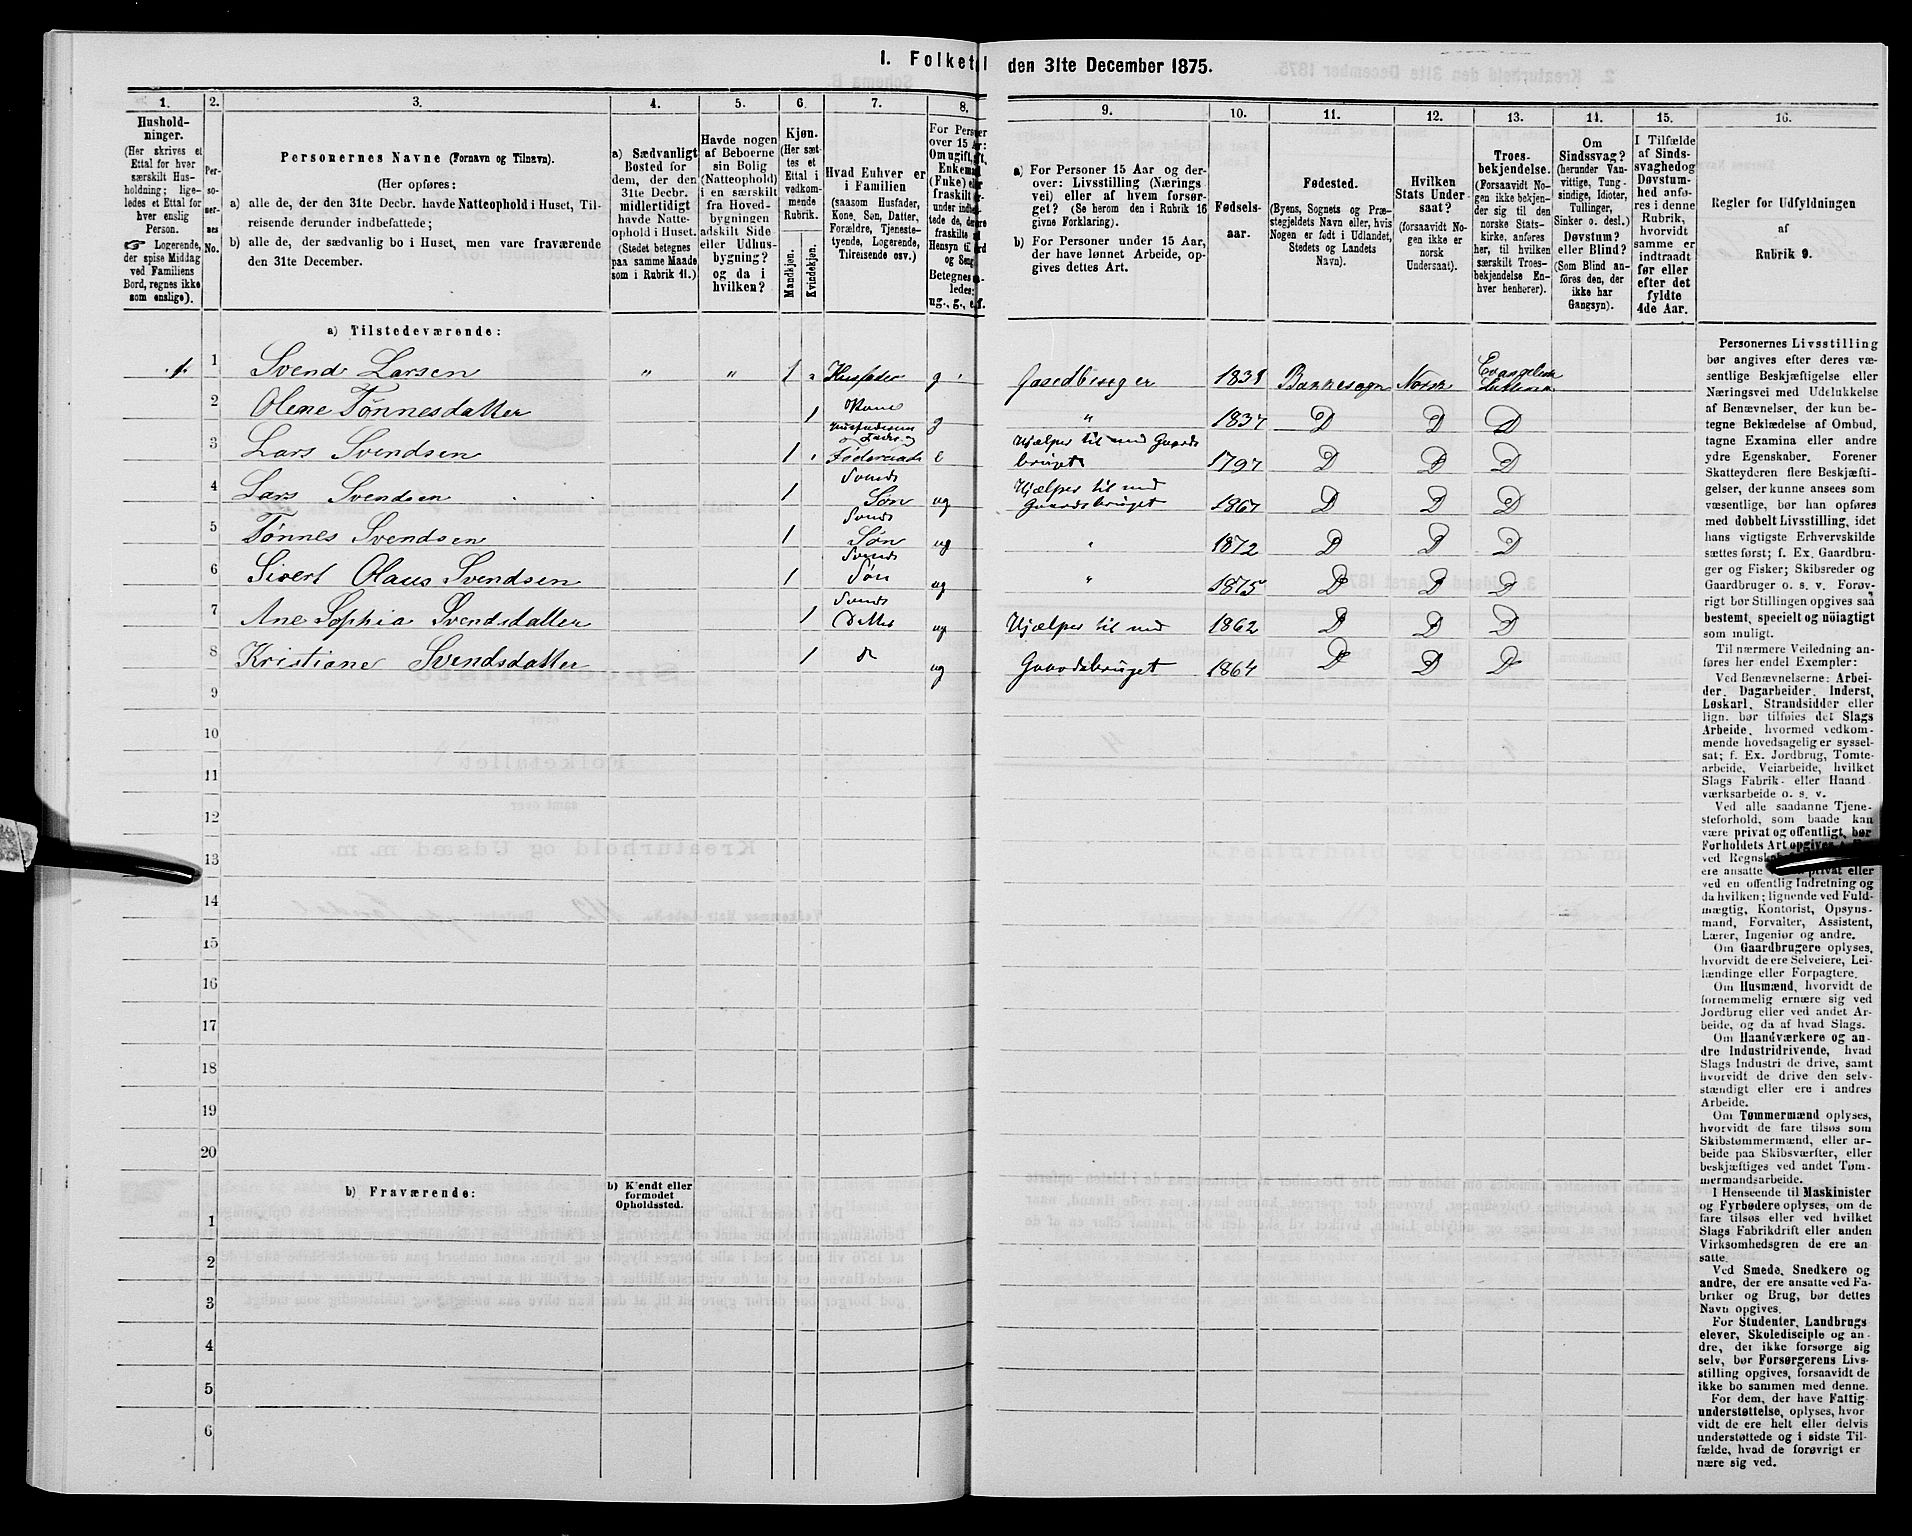 1. Folketal den 31te December 1875.
1.
2.
3.
4.
5.
6.
7.
8.
9.
10.
11.
12.
13.
14.
15.
16.
Hushold-
ninger.
(Her skrives et
Ettal for hver
særskilt Hus-
holdning; lige-
ledes et Ettal for
hver enslig
Person.
☞ Logerende,
der spise Middag
ved Familiens
Bord, regnes ikke
som enslige).
Per-
so-
ner-
nes
No.
Personernes Navne (Fornavn og Tilnavn).
(Her opføres:
a) alle de, der den 31te Decbr. havde Natteophold i Huset, Til-
reisende derunder indbefattede;
b) alle de, der sædvanlig bo i Huset, men vare fraværende
den 31te December.
a) Sædvanligt
Bosted for
dem, der den
31te Decbr.
midlertidigt
havde Natte-
ophold i Huset.
(Stedet betegnes
paa samme Maade
som i Rubrik 11.)
Havde nogen
af Beboerne
sin Bolig
(Natteophold)
i en særskilt
fra Hoved-
bygningen
adskilt Side
eller Udhus-
bygning?
og da i
hvilken?
Kjøn.
(Her sæt-
tes et
Ettal i
vedkom-
mende
Rubrik.
Mandkjøn.
Kvindekjøn.
Hvad Enhver er
i Familien
(saasom Husfader,
Kone, Søn, Datter,
Forældre, Tjeneste-
tyende, Logerende,
Tilreisende osv.)
For Personer
over 15 Aar:
Om ugift, gift,
Enkemand
(Enke) eller
fraskilt
Betegnes
saaledes:
ug., g., e., f.
a) For Personer 15 Aar og der-
over: Livsstilling (Nærings
vei) eller af hvem forsør-
get? (Se herom den i Rubrik 16
givne Forklaring).
b) For Personer under 15 Aar,
der have lønnet Arbeide, op-
gives dettes Art.
Fødsels-
aar.
Fødested.
(Byens, Sognets og Præ-
stegjeldets Navn eller, hvis
Nogen er født i Udlandet,
Stedets og Landets
Navn).
Hvilken
Stats Under
saat?
(forsaavidt No-
gen ikke er
norsk
Undersaat).
Troes-
bekjendelse.
(Forsaavidt No-
gen ikke bekjen-
der sig til den
norske Stats-
kirke, anføres
her, til hvilken
særskilt Troes-
bekjendelse En-
hver henhører).
Om
Sindssvag?
(herunder Van-
vittige, Tung-
sindige, Idioter,
Tullinger,
Sinker o. desl.)
Døvstum?
eller Blind?
(Som Blind an-
føres den, der
ikke har
Gangsyn).
I Tilfælde
af Sinds-
svaghed og
Døvstum-
hed anfø-
res i denne
Rubrik,
hvorvidt
samme er
indtraadt
før eller
efter det
fyldte
4de Aar.
Regler for Udfyldningen
af
Rubrik 9.
a) Tilstedeværende:
1. 1 Svend Larsen „ „ 1 „ Husfader g Gaardbruger 1838 Bakkesogn Norsk Evangelisk Luthersk
2 Olene Tønnesdatter 1 Kone g „ 1837 D D D
3 Lars Svendsen 1 Husfaderens Fader Føderaads e Hjælper til med Gaardsbruget 1797 D D D
4 Lars Svendsen 1 Svends Søn ug Hjælper til med Gaardsbruget 1867 D D D
5 Tønnes Svendsen 1 Svends Søn ug „ 1872 D D D
6 Sivert Olaus Svendsen 1 Svends Søn ug „ 1875 D D D
7 Ane Sophia Svendsdatter 1 Svends Datter ug Hjælper til med 1862 D D D
8 Kristiane Svendsdatter 1 d ug Gaardsbruget 1864 D D D
9
10
11
12
13
14
15
16
17
18
19
20
b) Fraværende:
b) Kjendt eller
formodet
Opholdssted.
1
2
3
4
5
6
Personernes Livsstilling
bør angives efter deres væ-
sentlige Beskjæftigelse eller
Næringsvei med Udelukkelse
af Benævnelser, der kun be-
tegne Beklædelse af Ombud,
tagne Examina eller andre
ydre Egenskaber. Forener
Skatteyderen flere Beskjæfti-
gelser, der kunne ansees som
væsentlige, bør han opføres
med dobbelt Livsstilling, idet
hans vigtigste Erhvervskilde
sættes først; f. Ex. Gaardbru-
ger og Fisker; Skibsreder og
Gaardbruger o. s. v. Forøv-
rigt bør Stillingen opgives saa
bestemt, specielt og nöiagtigt
som muligt.
Til nærmere Veiledning an-
føres her endel Exempler:
Ved Benævnelserne: Arbei-
der, Dagarbeider, Inderst,
Løskarl, Strandsidder eller
lign. bør tilføies det Slags
Arbeide, hvormed vedkom-
mende hovedsagelig er syssel-
sat; f. Ex. Jordbrug, Tomte-
arbeide, Veiarbeide, hvilket
Slags Fabrik- eller Haand
værksarbeide o. s. v.
Ved alle saadanne Tjene-
steforhold, som baade kan
være privat og offentligt, bør
Forholdets Art opgives
ved
ere ansatte privat eller
ved en offentlig Indretning og
da hvilken; lignende ved Fuld-
mægtig, Kontorist, Opsyns-
mand, Forvalter, Assistent,
Lærer, Ingeniør og andre.
Om Gaardbrugere oplyses,
hvorvidt de ere Selveiere, Lei-
lændinge eller Forpagtere.
Om Husmænd, hvorvidt de
fornemmelig ernære sig ved
Jordbrug eller ved andet Ar-
beide, og da af hvad Slags.
Om Haandværkere og an-
dre Industridrivende, hvad
Slags Industri de drive, samt
hvorvidt de drive den selv-
stændigt eller ere i andres
Arbeide.
Om Tømmermænd oplyses,
hvorvidt de fare tilsøs som
Skibstømmermænd, eller ar-
beide paa Skibsværfter, eller
beskjæftiges ved andet Tøm-
mermandsarbeide.
I Henseende til Maskinister
og Fyrbødere oplyses, om de
fare tilsøs eller ved hvilket
Slags Fabrikdrift eller anden
Virksomhedsgren de ere an
satte.
Ved Smede, Snedkere og
andre, der ere ansatte ved Fa-
briker og Brug, bør dettes
Navn opgives.
For Studenter, Landbrugs
elever, Skoledisciple og an-
dre, der ikke forsørge sig
selv, bør Forsørgerens Livs-
stilling opgives, forsaavidt de
ikke bo sammen med denne.
For dem, der have Fattig
understøttelse, oplyses, hvor-
vidt de ere helt eller delvis
understøttede og i sidste Til-
fælde, hvad de forøvrigt er
nære sig ved.